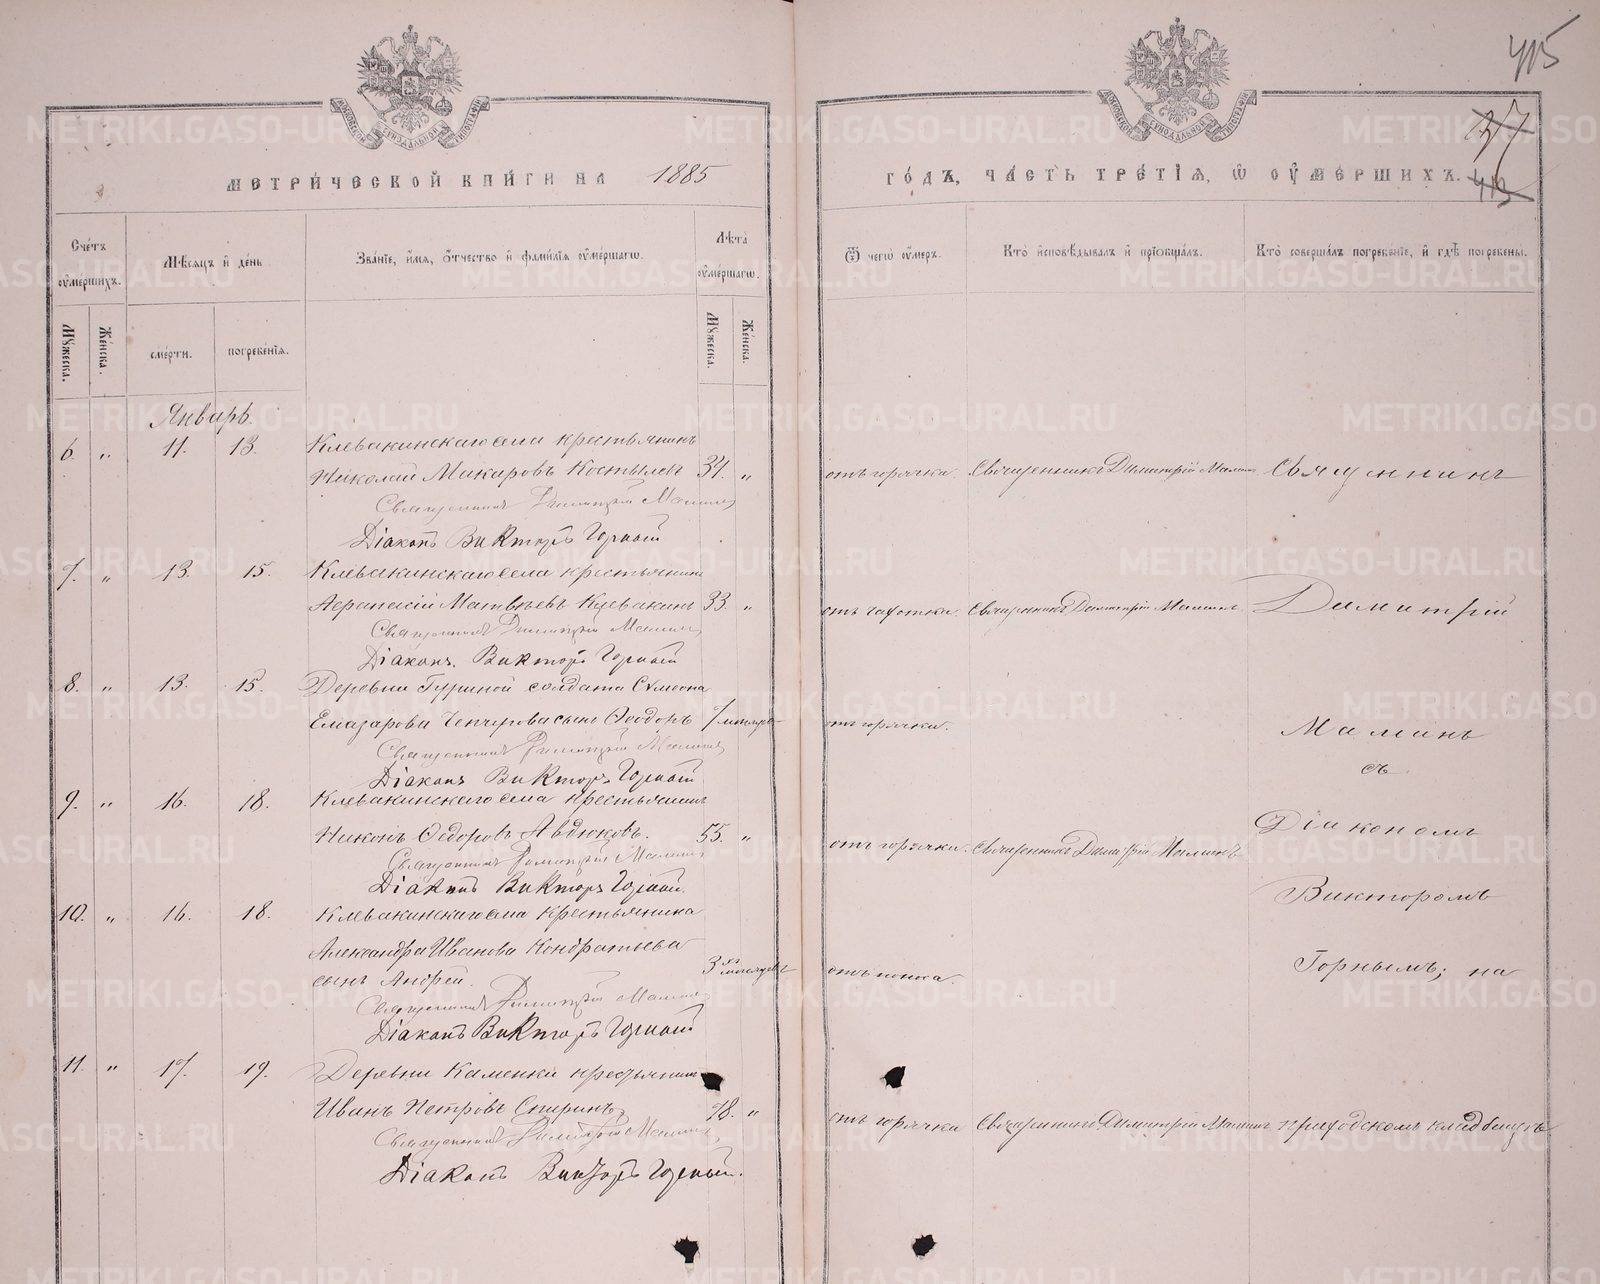 МЕТРИЧЕСКОЙ КНИГИ НА 1885
Счетъ умершихъ.
Мужеска.
Женска.
Мѣсяцъ и день
смерти.
погребенія.
Званіе, имя, отчество и фамилія умершаго.
Лѣта умершаго.
Мужеска.
Женска.
Январь
6. „ 11. 13. Клевакинскаго села крестьянинъ
Николай Макаровъ Костылевъ 34. „
Священникъ Димитрій Маминъ
Діаконъ Викторъ Горный
7. „ 13. 15. Клевакинскаго села крестьянинъ
Аѳанасій Матвѣевъ Клевакинъ 33. „
Священникъ Димитрій Маминъ
Діаконъ Викторъ Горный
8. „ 13. 15. Деревни Гуриной солдата Сѵмеона
сынъ Ѳеодоръ 7
Священникъ Димитрій Маминъ
Діаконъ Викторъ Горный
9. „ 16. 18. Клевакинскаго села крестьянинъ
Никонъ Ѳедоровъ Авдюковъ. 55. „
Священникъ Димитрій Маминъ
Діаконъ Викторъ Горный.
10. „ 16. 18. Клевакинскаго села крестьянина
Александра Иванова Кондратьева
сынъ Андрей. 3хъ мѣсяцевъ
Священникъ Димитрій Маминъ
Діаконъ Викторъ Горный
11. „ 17. 19. Деревни Каменки крестьянинъ
Иванъ Петровъ Спиринъ 78. „
Священникъ Димитрій Маминъ
Діаконъ Викторъ Горный.
415
413
ГОДЪ, ЧАСТЬ ТРЕТІЯ, Ѡ УМЕРШИХЪ.
Ѿ чего умеръ.
Кто исповѣдывалъ и пріобщалъ.
Кто совершалъ погребеніе, и гдѣ погребены.
отъ горячки. Священникъ Димитрій Маминъ Священникъ
отъ чахотки. Священникъ Димитрій Маминъ Димитрій
отъ горячки.
Маминъ
съ
Діакономъ
отъ горячки. Священникъ Димитрій Маминъ
Викторомъ
отъ поноса. Горнымъ; на
отъ горячки Священникъ Димитрій Маминъ приходскомъ кладбищѣ
METRIKI.GASO-URAL.RU